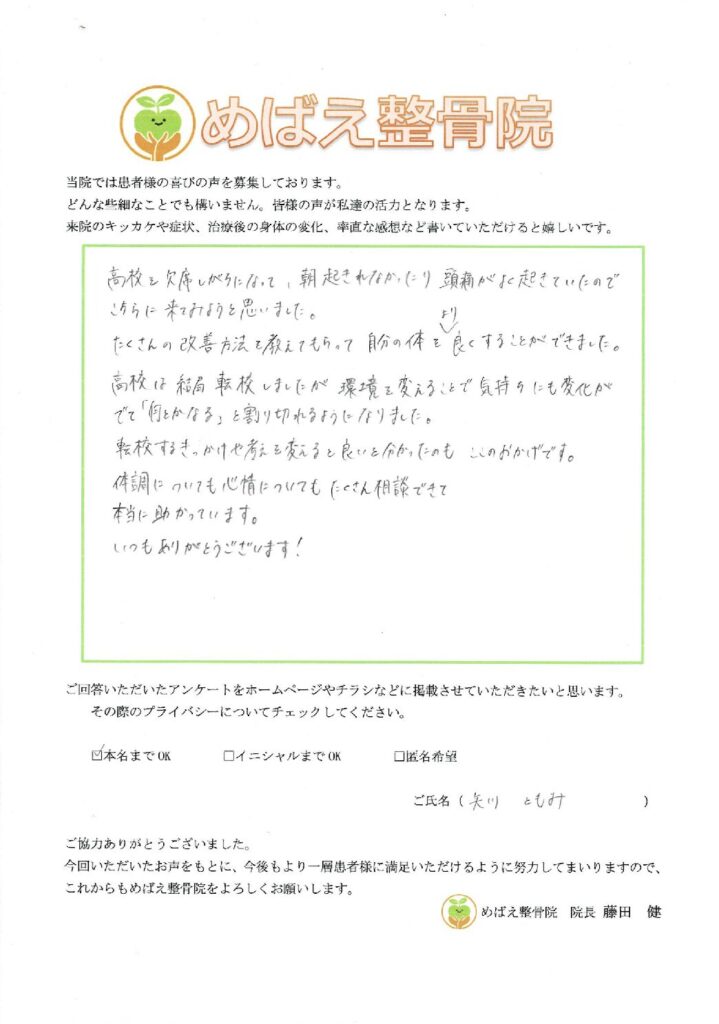 めばえ整骨院
当院では患者様の喜びの声を募集しております。
どんな些細なことでも構いません。皆様の声が私達の活力となります。
来院のキッカケや症状、治療後の身体の変化、率直な感想など書いていただけると嬉しいです。
高校を欠席しがちになって、朝起きれなかったり 頭痛がよく起きていたので
こちらに来てみようと思いました。
より
たくさんの改善方法を教えてもらって 自分の体を良くすることができました。
高校は結局転校しましたが 環境を変えることで気持ちにも変化が
でて「何とかなる」と割り切れるようになりました。
転校するきっかけや考えを変えると良いと分かったのも ここのおかげです。
体調についても心情についてもたくさん相談できて
本当に助かっています。
いつもありがとうございます!
ご回答いただいたアンケートをホームページやチラシなどに掲載させていただきたいと思います。
その際のプライバシーについてチェックしてください。
☑本名までOK □イニシャルまでOK □匿名希望
ご氏名(矢川 ともみ)
ご協力ありがとうございました。
今回いただいたお声をもとに、今後もより一層患者様に満足いただけるように努力してまいりますので、
これからもめばえ整骨院をよろしくお願いします。
めばえ整骨院 院長 藤田 健